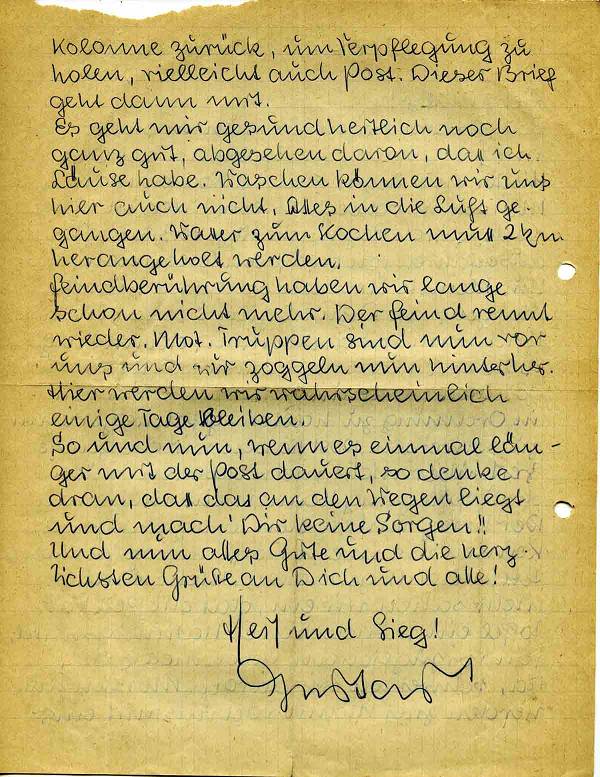 Kolonne zurück, um Verpflegung zu
holen, vielleicht auch Post. Dieser Brief
geht dann mit.
Es geht mir gesundheitlich noch
ganz gut, abgesehen davon, dass ich
Läuse habe. Waschen können wir uns
hier auch nicht. Alles in die Luft ge-
gangen. Wasser zum Kochen muss 2 km
herangeholt werden.
Feindberührung haben wir lange
schon nicht mehr. Der Feind rennt
wieder. Mot. Truppen sind nun vor
uns und wir zoggeln nun hinterher.
Hier werden wir wahrscheinlich
einige Tage bleiben.
So und nun, wenn es einmal län-
ger mit der Post dauert, so denke
dran, dass das an den Wegen liegt
und mach' Dir keine Sorgen!!
Und nun alles Gute und die herz-
lichsten Grüße an Dich und alle!
Heil und Sieg!
Gustav